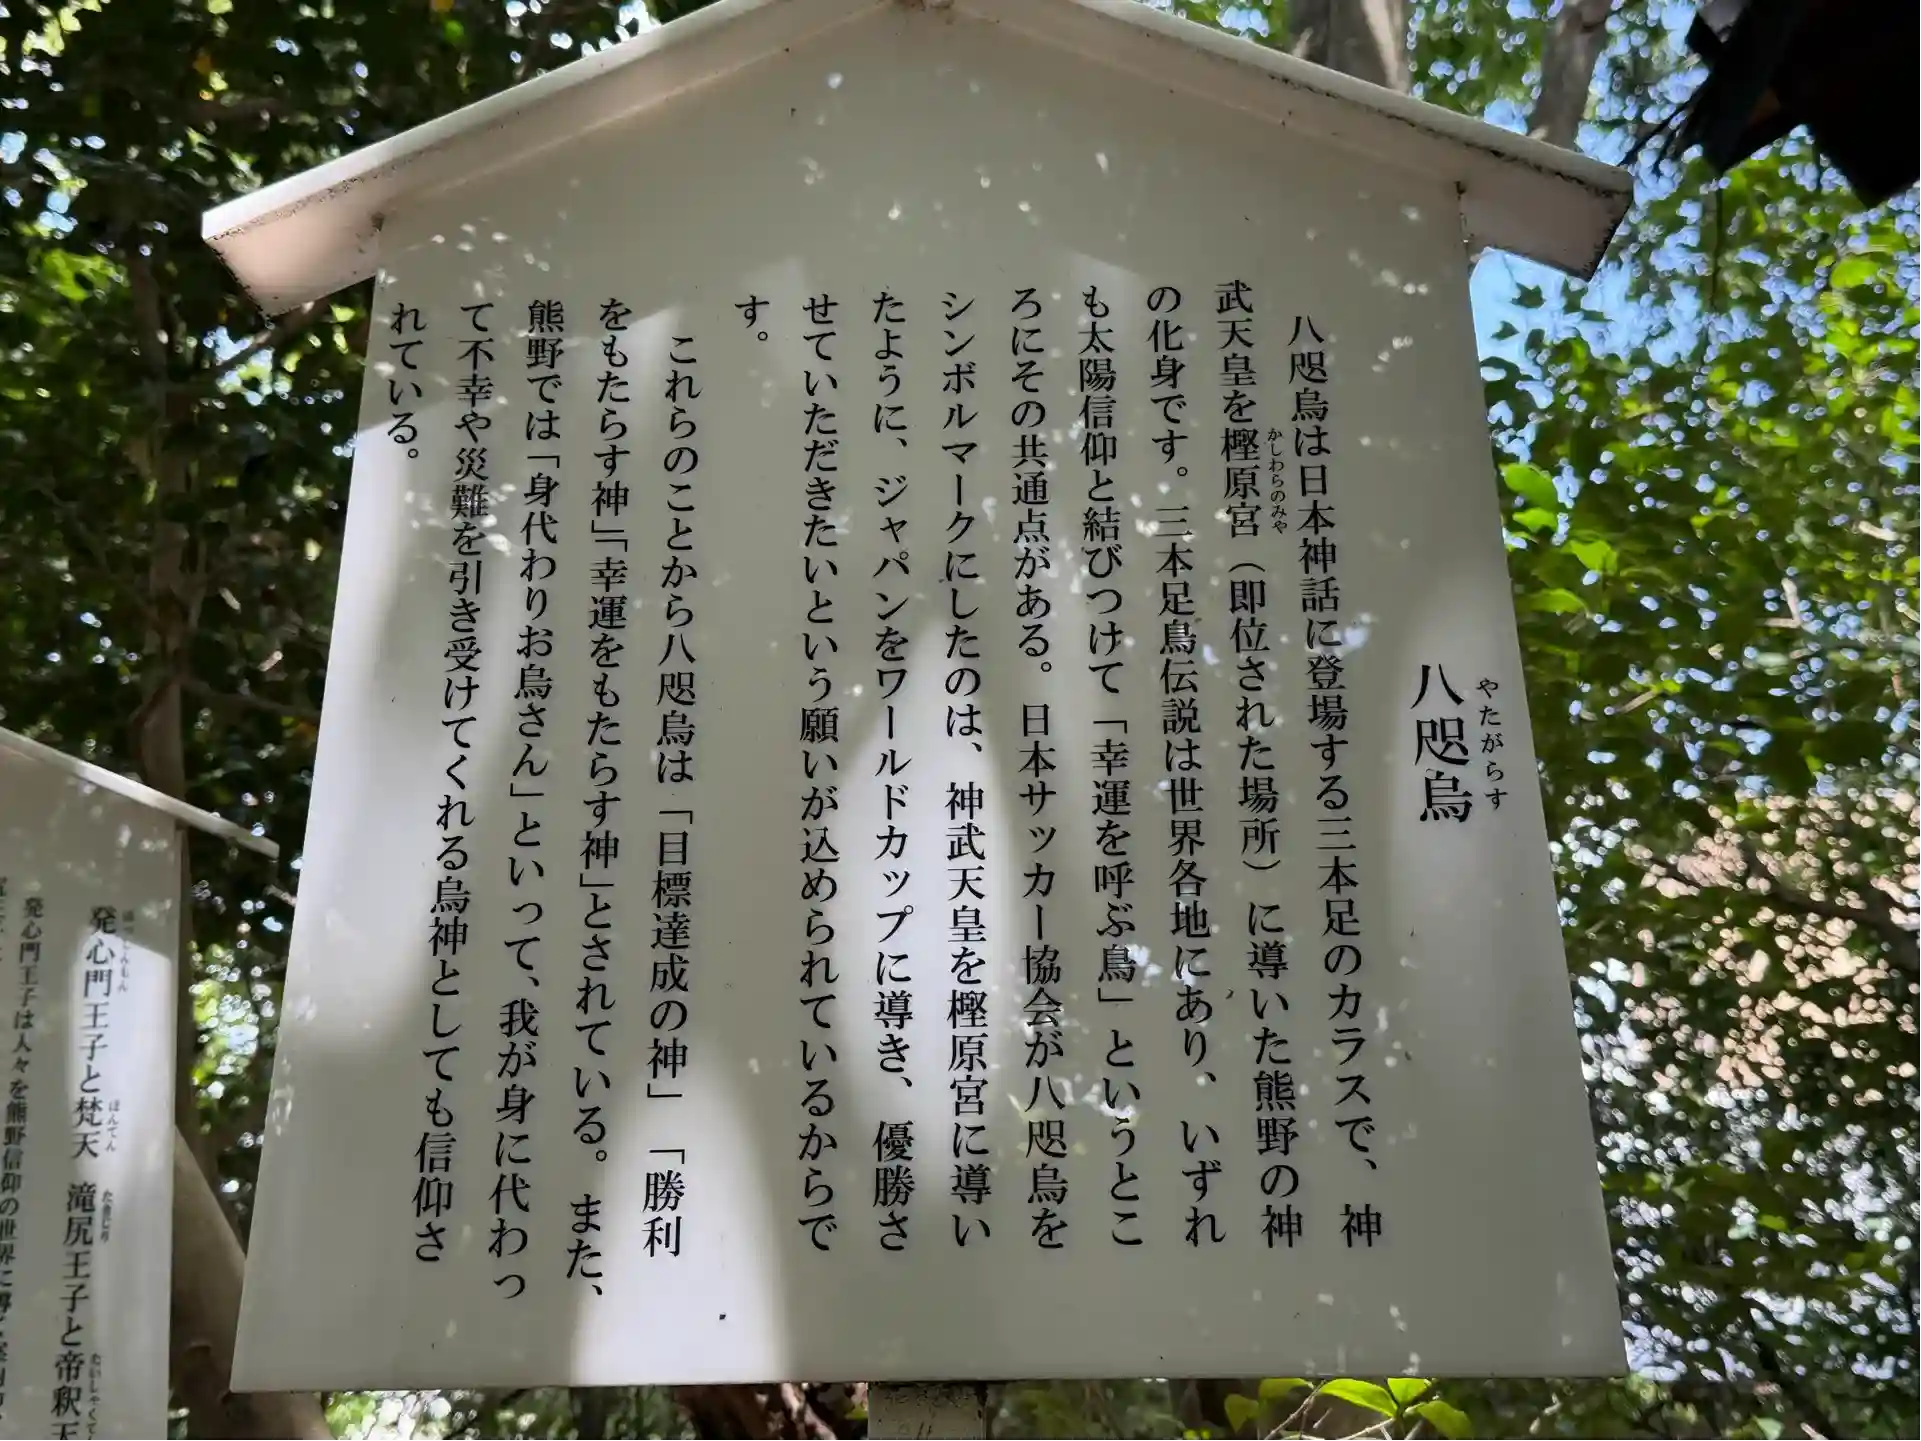 八咫烏
やたがらす
八咫烏は日本神話に登場する三本足のカラスで、神
武天皇を樫原宮（即位された場所）に導いた熊野の神
かしわらのみや
の化身です。三本足烏伝説は世界各地にあり、いずれ
も太陽信仰と結びつけて「幸運を呼ぶ鳥」というとこ
ろにその共通点がある。日本サッカー協会が八咫烏を
シンボルマークにしたのは、神武天皇を樫原宮に導い
たように、ジャパンをワールドカップに導き、優勝さ
せていただきたいという願いが込められているからで
す。
これらのことから八咫烏は「目標達成の神」「勝利
をもたらす神」「幸運をもたらす神」とされている。また、
熊野では「身代わりお烏さん」といって、我が身に代わっ
て不幸や災難を引き受けてくれる烏神としても信仰さ
れている。
発心門王子と梵天 滝尻王子と帝釈天
ほっしんもん ぼんてん たきじり たいしゃくてん
発心門王子は人々を熊野信仰の世界に導き